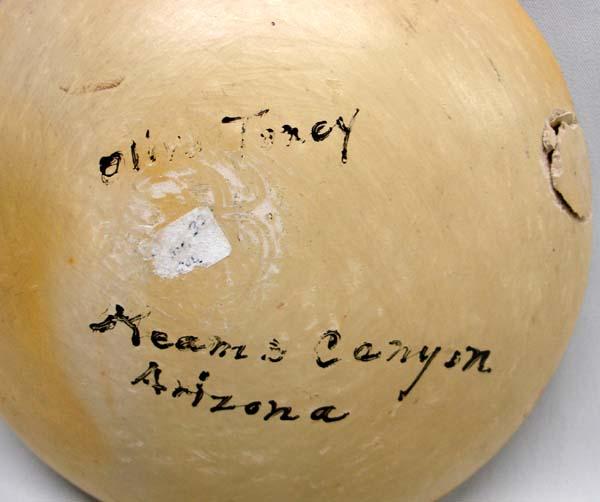 Olive Toney
Keams Canyon
Arizona